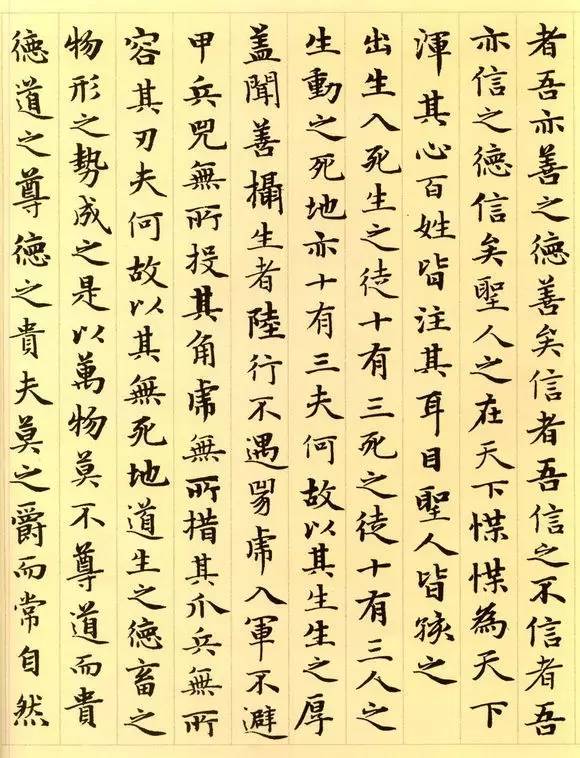 者吾亦善之德善矣信者吾信之不信者吾
亦信之德信矣聖人之在天下惵惵為天下
渾其心百姓皆注其耳目聖人皆孩之
出生入死生之徒十有三死之徒十有三人之
生動之死地亦十有三夫何故以其生生之厚
蓋聞善攝生者陸行不遇兕虎入軍不避
甲兵兕無所投其角虎無所措其爪兵無所
容其刃夫何故以其無死地道生之德畜之
物形之勢成之是以萬物莫不尊道而貴
德道之尊德之貴夫莫之爵而常自然